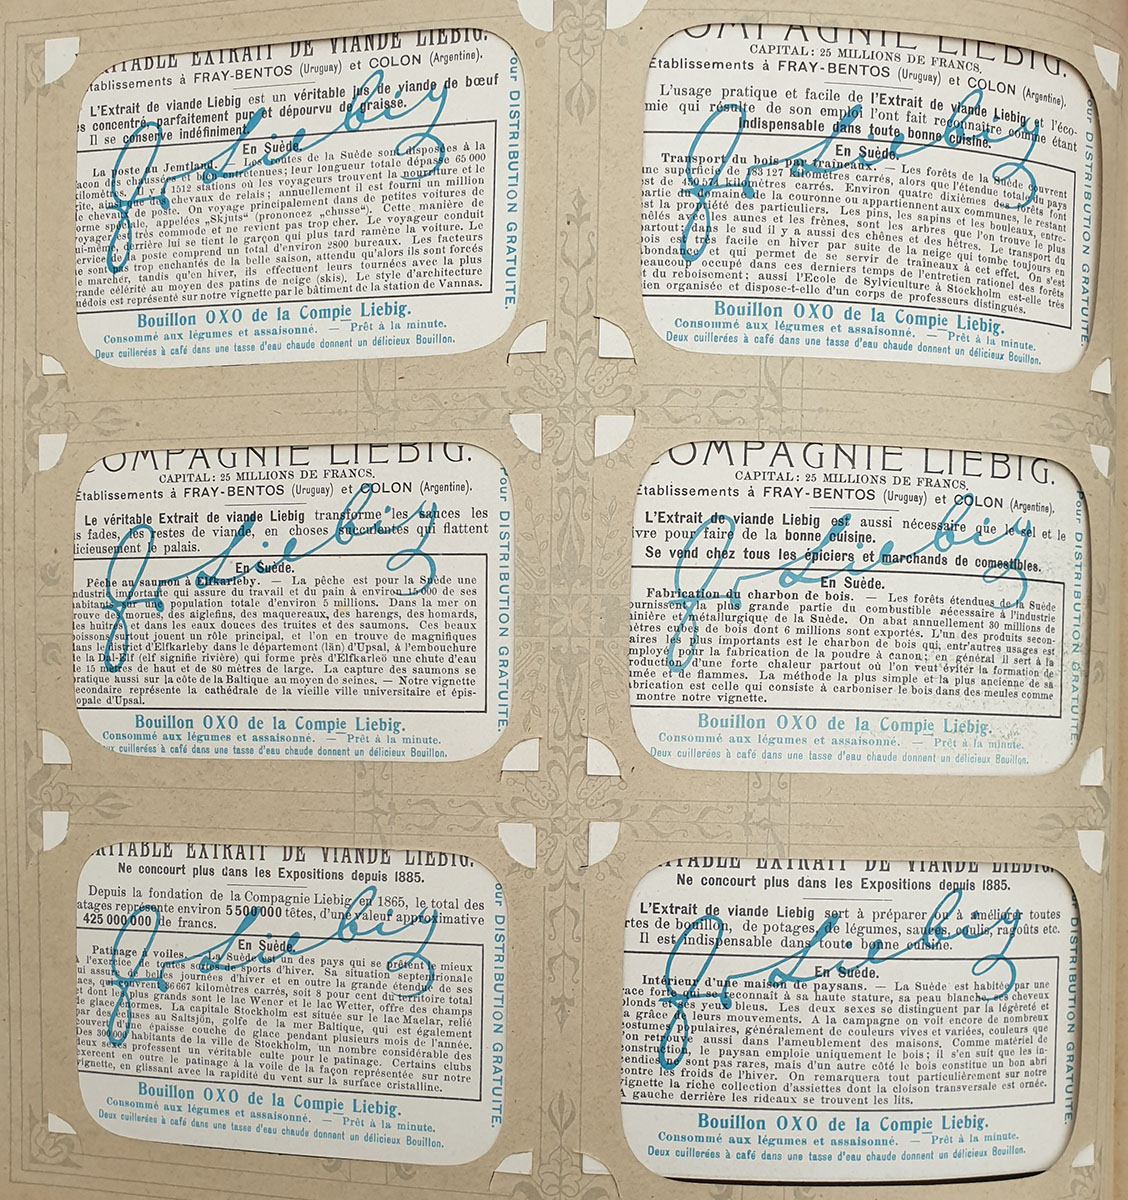 RITABLE EXTRAIT DE VIANDE LIEBIG.
tablissements à FRAY-BENTOS (Uruguay) et COLON (Argentine).
L'Extrait de viande Liebig est un véritable jus de viande de bœuf
s concentré, parfaitement pur et dépourvu de graisse.
Il se conserve indéfiniment.
En Suède.
La poste au Jemtland. — Les routes de la Suède sont disposées à la
açon des chaussées et bien entretenues; leur longueur totale dépasse 65 000
kilomètres. Il y a 1512 stations où les voyageurs trouvent la nourriture et le
chevaux de relais; annuellement il est fourni un million
de chevaux de poste. On voyage principalement dans de petites voitures de
orme appelées „Skjuts“ (prononcez „chusse“). Cette manière de
voyager très commode et ne revient pas trop cher. Le voyageur conduit
ui-même, derrière lui se tient le garçon qui plus tard ramène la voiture. Le
service de la poste comprend un total d'environ 2800 bureaux. Les facteurs
e sont pas trop enchantés de la belle saison, attendu qu'alors ils sont forcés
e marcher, tandis qu'en hiver, ils effectuent leurs tournées avec la plus
rande célérité au moyen des patins de neige (skis). Le style d'architecture
uédois est représenté sur notre vignette par le bâtiment de la station de Vannas.
Bouillon OXO de la Compie Liebig.
Consommé aux légumes et assaisonné. — Prêt à la minute.
Deux cuillerées à café dans une tasse d'eau chaude donnent un délicieux Bouillon.
our DISTRIBUTION GRATUITE.
J v Liebig
OMPAGNIE LIEBIG.
CAPITAL: 25 MILLIONS DE FRANCS.
Établissements à FRAY-BENTOS (Uruguay) et COLON (Argentine).
L'usage pratique et facile de l'Extrait de viande Liebig et l'éco-
mie qui résulte de son emploi l'ont fait reconnaître comme étant
indispensable dans toute bonne cuisine.
En Suède.
Transport du bois par traîneaux. — Les forêts de la Suède couvrent
ne superficie de 783 127 kilomètres carrés, alors que l'étendue totale du pays
est de 450 574 kilomètres carrés. Environ quatre dixièmes des forêts font
partie du domaine de la couronne ou appartiennent aux communes, le restant
est la propriété des particuliers. Les pins, les sapins et les bouleaux, entre-
mêlés avec les aunes et les frênes, sont les arbres que l'on trouve le plus
partout; vers le sud il y a aussi des chênes et des hêtres. Le transport du
bois est très facile en hiver par suite de la neige qui tombe toujours en
bondance et qui permet de se servir de traîneaux à cet effet. On s'est
beaucoup occupé dans ces derniers temps de l'entretien rationel des forêts
t du reboisement; aussi l'Ecole de Sylviculture à Stockholm est-elle très
ien organisée et dispose-t-elle d'un corps de professeurs distingués.
Bouillon OXO de la Compie Liebig.
Consommé aux légumes et assaisonné. — Prêt à la minute.
Deux cuillerées à café dans une tasse d'eau chaude donnent un délicieux Bouillon.
our DISTRIBUTION GRATUITE.
J v Liebig
OMPAGNIE LIEBIG.
CAPITAL: 25 MILLIONS DE FRANCS.
Établissements à FRAY-BENTOS (Uruguay) et COLON (Argentine).
Le véritable Extrait de viande Liebig transforme les sauces les
s fades, les restes de viande, en choses succulentes qui flattent
licieusement le palais.
En Suède.
Pêche au saumon à Elfkarleby. — La pêche est pour la Suède une
ndustrie importante qui assure du travail et du pain à environ 15 000 de ses
habitants sur une population totale d'environ 5 millions. Dans la mer on
rouve des morues, des aiglefins, des maquereaux, des harengs, des homards,
les huîtres et dans les eaux douces des truites et des saumons. Ces beaux
poissons surtout jouent un rôle principal, et l'on en trouve de magnifiques
ans le district d'Elfkarleby dans le département (län) d'Upsal, à l'embouchure
e la Dal-Elf (elf signifie rivière) qui forme près d'Elfkarleö une chute d'eau
e 15 mètres de haut et de 80 mètres de large. La capture des saumons se
ratique aussi sur la côte de la Baltique au moyen de seines. — Notre vignette
econdaire représente la cathédrale de la vieille ville universitaire et épis-
opale d'Upsal.
Bouillon OXO de la Compie Liebig.
Consommé aux légumes et assaisonné. — Prêt à la minute.
ux cuillerées à café dans une tasse d'eau chaude donnent un délicieux Bouillon.
our DISTRIBUTION GRATUITE.
J v Liebig
OMPAGNIE LIEBIG.
CAPITAL: 25 MILLIONS DE FRANCS.
Établissements à FRAY-BENTOS (Uruguay) et COLON (Argentine).
L'Extrait de viande Liebig est aussi nécessaire que le sel et le
ivre pour faire de la bonne cuisine.
Se vend chez tous les épiciers et marchands de comestibles.
En Suède.
Fabrication du charbon de bois. — Les forêts étendues de la Suède
ournissent la plus grande partie du combustible nécessaire à l'industrie
inière et métallurgique de la Suède. On abat annuellement 30 millions de
ètres cubes de bois dont 6 millions sont exportés. L'un des produits secon-
aires les plus importants est le charbon de bois qui, entr'autres usages est
mployé pour la fabrication de la poudre à canon; en général il sert à la
roduction d'une forte chaleur partout où l'on veut éviter la formation de
umée et de flammes. La méthode la plus simple et la plus ancienne de sa
abrication est celle qui consiste à carboniser le bois dans des meules comme
montre notre vignette.
Bouillon OXO de la Compie Liebig.
Consommé aux légumes et assaisonné. — Prêt à la minute.
Deux cuillerées à café dans une tasse d'eau chaude donnent un délicieux Bouillon.
our DISTRIBUTION GRATUITE.
J v Liebig
RITABLE EXTRAIT DE VIANDE LIEBIG.
Ne concourt plus dans les Expositions depuis 1885.
Depuis la fondation de la Compagnie Liebig en 1865, le total des
atages représente environ 5 500 000 têtes, d'une valeur approximative
425 000 000 de francs.
En Suède.
Patinage à voiles. — La Suède est un des pays qui se prêtent le mieux
à l'exercice de toutes sortes de sports d'hiver. Sa situation septentrionale
ui assure de belles journées d'hiver et en outre la grande étendue de ses
acs, qui couvrent 36667 kilomètres carrés, soit 8 pour cent du territoire total
et dont les plus grands sont le lac Wener et le lac Wetter, offre des champs
de glace énormes. La capitale Stockholm est située sur le lac Maelar, relié
par des écluses au Saltsjön, golfe de la mer Baltique, qui est également
couvert d'une épaisse couche de glace pendant plusieurs mois de l'année.
Des 300 000 habitants de la ville de Stockholm, un nombre considérable des
deux sexes professent un véritable culte pour le patinage. Certains clubs
exercent en outre le patinage à la voile de la façon représentée sur notre
vignette, en glissant avec la rapidité du vent sur la surface cristalline.
Bouillon OXO de la Compie Liebig.
Consommé aux légumes et assaisonné. — Prêt à la minute.
Deux cuillerées à café dans une tasse d'eau chaude donnent un délicieux Bouillon.
our DISTRIBUTION GRATUITE.
J v Liebig
ITABLE EXTRAIT DE VIANDE LIEBIG
Ne concourt plus dans les Expositions depuis 1885.
L'Extrait de viande Liebig sert à préparer ou à améliorer toutes
rtes de bouillon, de potages, de légumes, sauces, coulis, ragoûts etc.
Il est indispensable dans toute bonne cuisine.
En Suède.
Intérieur d'une maison de paysans. — La Suède est habitée par une
race forte qui se reconnaît à sa haute stature, sa peau blanche, ses cheveux
blonds et ses yeux bleus. Les deux sexes se distinguent par la légèreté et
a grâce de leurs mouvements. A la campagne on voit encore de nombreux
costumes populaires, généralement de couleurs vives et variées, couleurs que
on retrouve aussi dans l'ameublement des maisons. Comme matériel de
onstruction, le paysan emploie uniquement le bois; il s'en suit que les in-
endies ne sont pas rares, mais d'un autre côté le bois constitue un bon abri
contre les froids de l'hiver. On remarquera tout particulièrement sur notre
vignette la riche collection d'assiettes dont la cloison transversale est ornée.
A gauche derrière les rideaux se trouvent les lits.
Bouillon OXO de la Compie Liebig.
Consommé aux légumes et assaisonné. — Prêt à la minute.
Deux cuillerées à café dans une tasse d'eau chaude donnent un délicieux Bouillon.
ur DISTRIBUTION GRATUITE.
J v Liebig